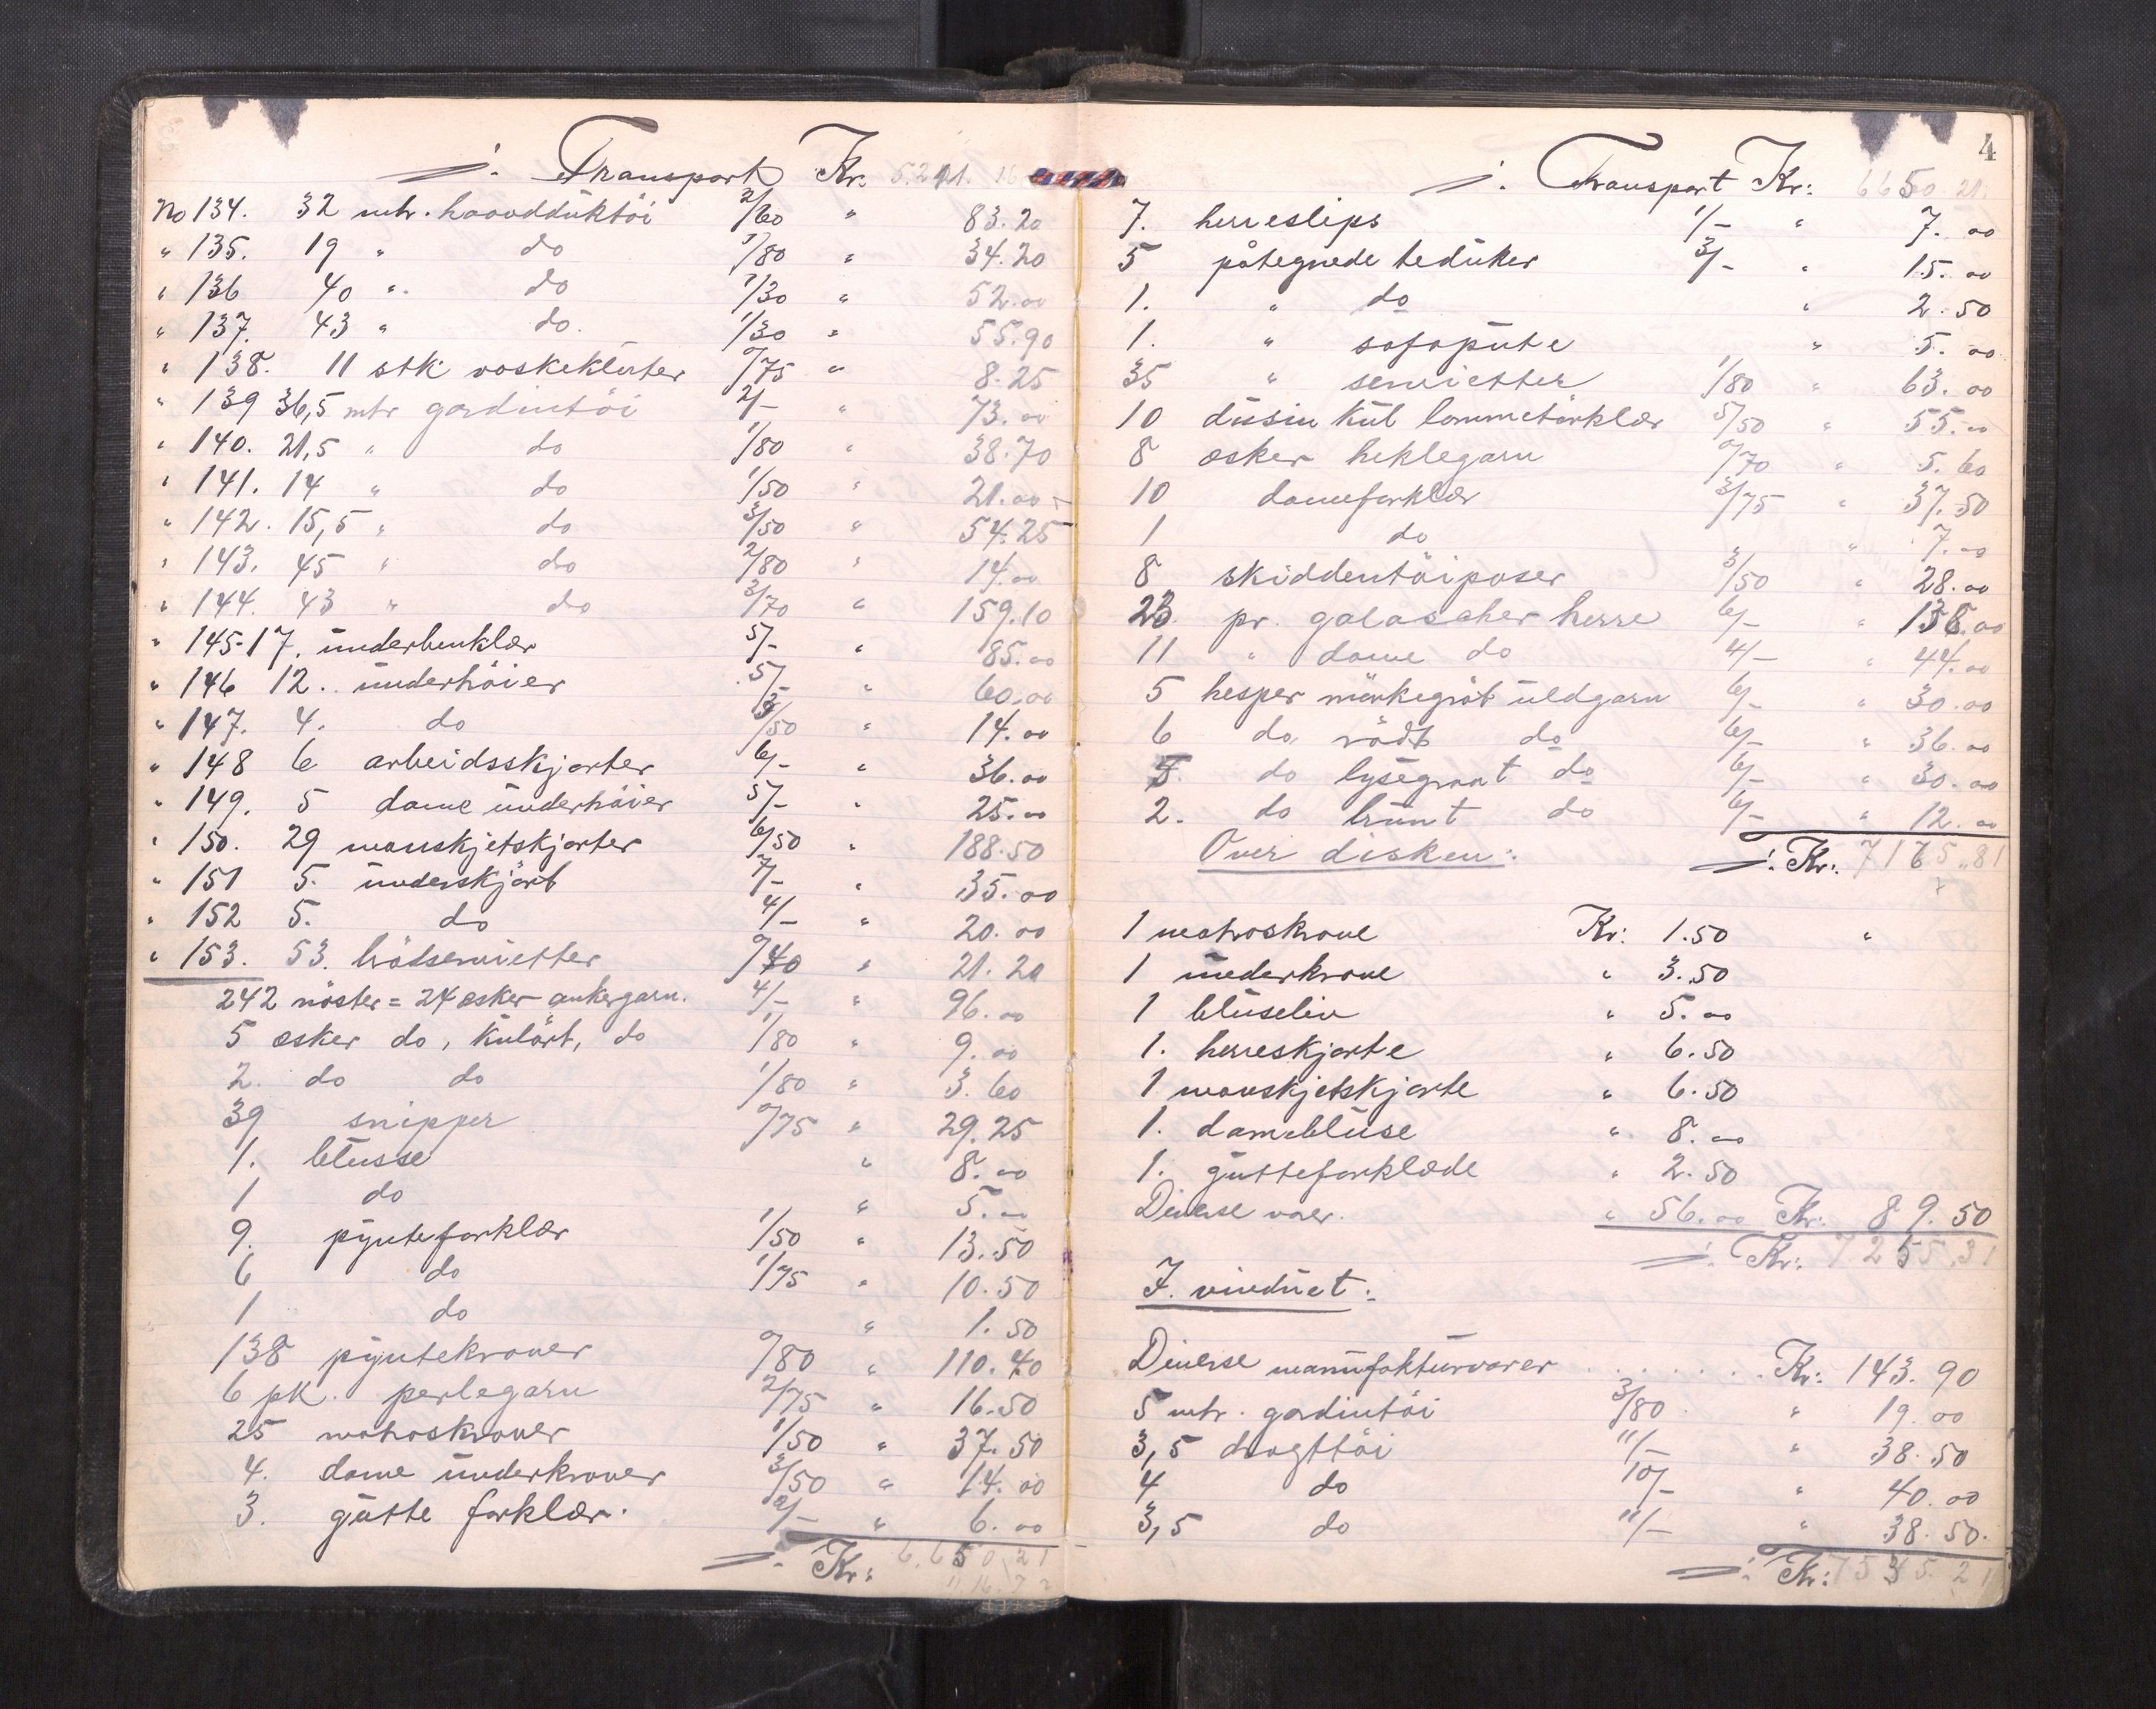 Transport Kr. 5.211.16
No 134. 32 mtr. haanddüktöi 2/60 " 83.20
" 135. 19 " do 1/80 " 34.20
" 136 40 " do 1/30 " 52.00
" 137. 43 " do. 1/30 " 55.90
" 138. 11 stk vaskeklüter 0/75 " 8.25
" 139 36,5 mtr gardintöi 2/- " 73.00
" 140. 21,5 " do 1/80 " 38.70
" 141. 14 " do 1/50 " 21.00
" 142. 15,5 " do 3/50 " 54.25
" 143. 45 " do 2/80 " 14.00
" 144. 43 " do 3/70 " 159.10
" 145-17. ünderbenklær 5/- " 85.00
" 146 12. ündertröier 5/- " 60.00
" 147. 4. do 3/50 " 14.00
" 148 6 arbeidsskjorter 6/- " 36.00
" 149. 5 dame ündertröier 5/- " 25.00
" 150. 29 manskjetskjorter 6/50 " 188.50
" 151 5. ünderskjört 7/- " 35.00
" 152 5. do 4/- " 20.00
" 153. 53. brödservietter 0/40 " 21.20
242 nöster = 24 æsker ankergarn. 4/- " 96.00
5 æsker do, külört, do 1/80 " 9.00
2. do do 1/80 " 3.60
39 snipper 0/75 " 29.25
1. blusse " 8.00
1 do " 5.00
9. pynteforklær 1/50 " 13.50
6 do 1/75 " 10.50
1 do " 1.50
138 pyntekraver 0/80 " 110.40
6 pk. perlegarn 2/75 " 16.50
25 matroskraver 1/50 " 37.50
4. dame ünderkraver 3/50 " 14.00
3. gütte forklær. 2/- " 6.00
Kr: 6.650.21
4
Transport Kr: 6650 21.
7. herreslips 1/- " 7.00
5 påtegnede tedüker 3/- " 15.00
1. " do " 2.50
1. " sofapüte " 5.00
35 " servietter 1/80 " 63.00
10 düsin kül lommetörklær 5/50 " 55.00
8 æsker heklegarn 0/70 " 5.60
10 dameforklær 3/75 " 37.50
1 do " 7.00
8 skiddentöiposer 3/50 " 28.00
23 pr. galoscher herre 6/- " 138.00
11 " dame do 4/- " 44.00
5 hesper mörkegråt üldgarn 6/- " 30.00
6 do rödt do 6/- " 36.00
5. do lysegraat do 6/- " 30.00
2. do brünt do 6/- " 12.00
Over disken: Kr: 7165.81
1 matroskrave Kr: 1.50 "
1 ünderkrave " 3.50
1 blüseliv " 5.00
1. herreskjorte " 6.50
1 manskjetskjorte " 6.50
1. dameblüse " 8.00
1. gütteforklæde " 2.50
Diverse varer. " 56.00 Kr: 89.50
Kr: 7.255.31
I. vindüet:
Diverse manüfaktürvarer ....... Kr: 143.90
5 mtr. gardintöi 3/80 " 19.00
3,5 dragttöi 11/- " 38.50
4 do 10/- " 40.00
3,5 do 11/- " 38.50.
Kr: 7535.21